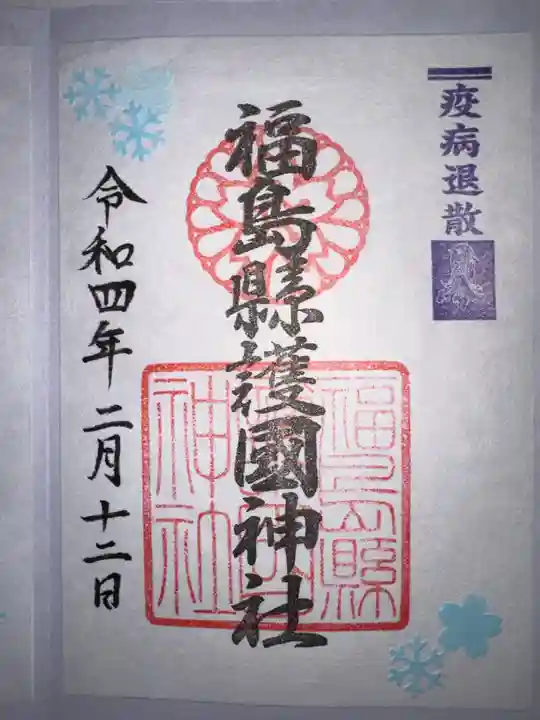 疫病退散
福島縣護國神社
福島縣
神社
令和四年二月十二日